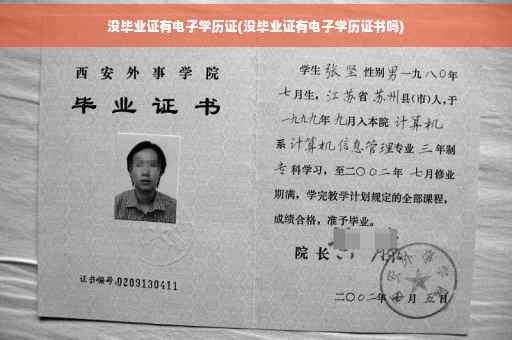 没毕业证有电子学历证(没毕业证有电子学历证书吗)
西安外事学院
毕业证书
证书编号:0209130411
学生 张坚 性别 男 一九八〇年
七月生, 江苏省 苏州县(市)人, 于
一九九九年 九月入本院 计算机
系 计算机信息管理专业 三 年制
专科学习, 至二〇〇二年 七月修业
期满, 学完教学计划规定的全部课程,
成绩合格, 准予毕业。
院长
二〇〇二年 七 月 五 日